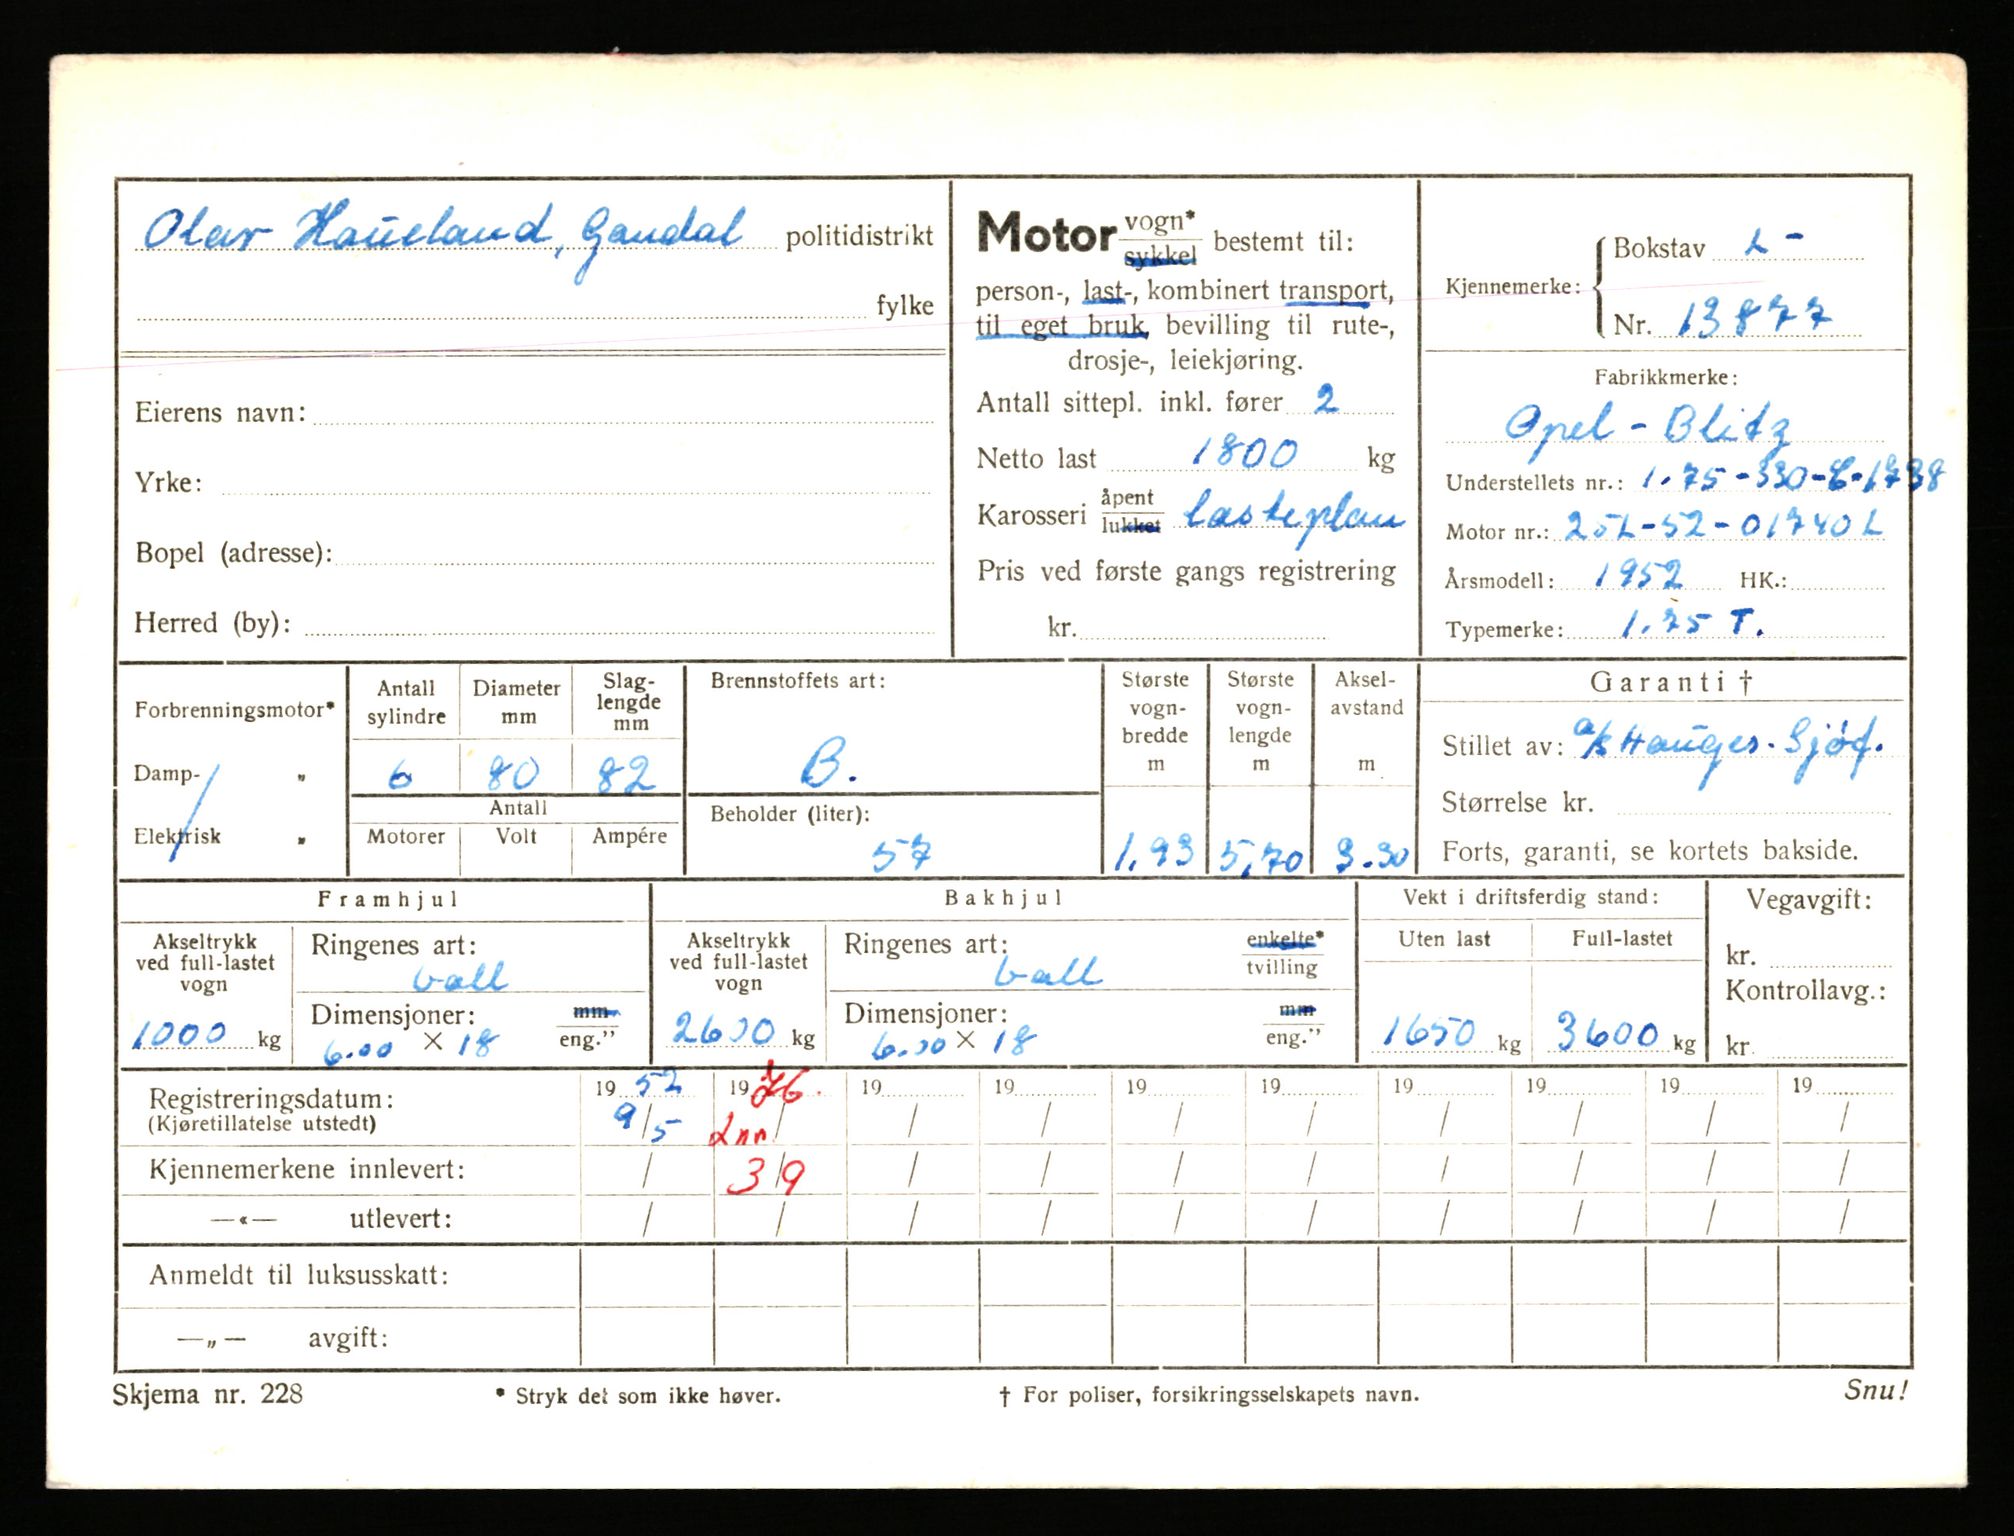 Olav Haueland, Gandal politidistrikt
fylke
Eierens navn:
Yrke:
Bopel (adresse):
Herred (by):
Motor vogn* sykkel bestemt til:
person-, last-, kombinert transport,
til eget bruk, bevilling til rute-,
drosje-, leiekjøring.
Antall sittepl. inkl. fører 2
Netto last 1800 kg
Karosseri åpent lukket lasteplan
Pris ved første gangs registrering
kr.
Kjennemerke: Bokstav L-
Nr. 13877
Fabrikkmerke:
Opel - Blitz
Understellets nr.: 1.75-330-6-1738
Motor nr.: 25L-52-01740L
Årsmodell: 1952 HK.:
Typemerke: 1.75 T.
Forbrenningsmotor*
Damp- "
Elektrisk "
Antall sylindre
6
Diameter mm
80
Slag-lengde mm
82
Antall
Motorer Volt Ampére
Brennstoffets art:
B.
Beholder (liter):
57
Største vogn-bredde m
1.93
Største vogn-lengde m
5,70
Aksel-avstand m
3.30
Garanti †
Stillet av: a/s Hauges. Sjøf.
Størrelse kr.
Forts, garanti, se kortets bakside.
Framhjul
Akseltrykk ved full-lastet vogn
1000 kg
Ringenes art:
ball
Dimensjoner: mm eng."
6.00 × 18
Bakhjul
Akseltrykk ved full-lastet vogn
2600 kg
Ringenes art: enkelte* tvilling
ball
Dimensjoner: mm eng."
6.00 × 18
Vekt i driftsferdig stand:
Uten last Full-lastet
1650 kg 3600 kg
Vegavgift:
kr.
Kontrollavg.:
kr.
Registreringsdatum: 19 52 19 76. 19 19 19 19 19 19 19 19
(Kjøretillatelse utstedt) 9/5 Inn / / / / / / / / /
Kjennemerkene innlevert: / 3/9 / / / / / / / /
—«— utlevert: / / / / / / / / / /
Anmeldt til luksusskatt:
—„— avgift:
Skjema nr. 228 * Stryk det som ikke høver. † For poliser, forsikringsselskapets navn. Snu!